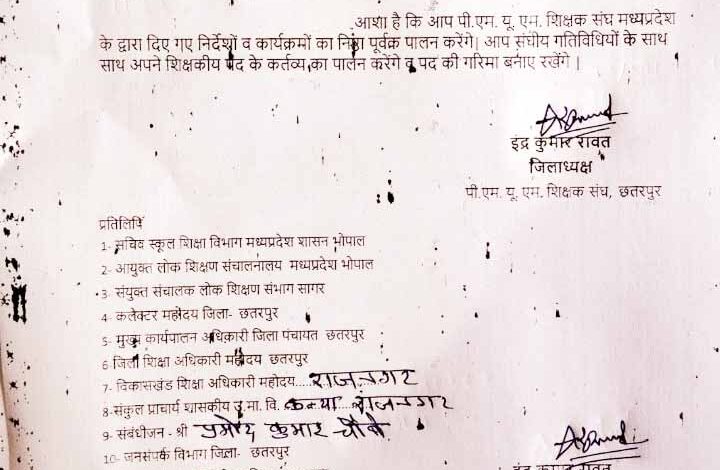 आशा है कि आप पी.एम. यू. एम. शिक्षक संघ मध्यप्रदेश
के द्वारा दिए गए निर्देशों व कार्यक्रमों का निष्ठा पूर्वक पालन करेंगे। आप संघीय गतिविधियों के साथ
साथ अपने शिक्षकीय पद के कर्तव्य का पालन करेंगे व पद की गरिमा बनाए रखेंगे |
इंद्र कुमार रावत
जिलाध्यक्ष
पी.एम. यू. एम. शिक्षक संघ, छतरपुर
प्रतिलिपि
1- सचिव स्कूल शिक्षा विभाग मध्यप्रदेश शासन भोपाल
2- आयुक्त लोक शिक्षण संचालनालय मध्यप्रदेश भोपाल
3- संयुक्त संचालक लोक शिक्षण संभाग सागर
4- कलेक्टर महोदय जिला- छतरपुर
5- मुख्य कार्यपालन अधिकारी जिला पंचायत छतरपुर
6 जिला शिक्षा अधिकारी महोदय छतरपुर
7- विकासखंड शिक्षा अधिकारी महोदय.... राजनगर
8- संकुल प्राचार्य शासकीय उ.मा. वि. कन्या.... राजनगर
9- संबंधीजन - श्री प्रमोद कुमार चौबे
10- जनसंपर्क विभाग जिला- छतरपुर
इंद्र कुमार रावत